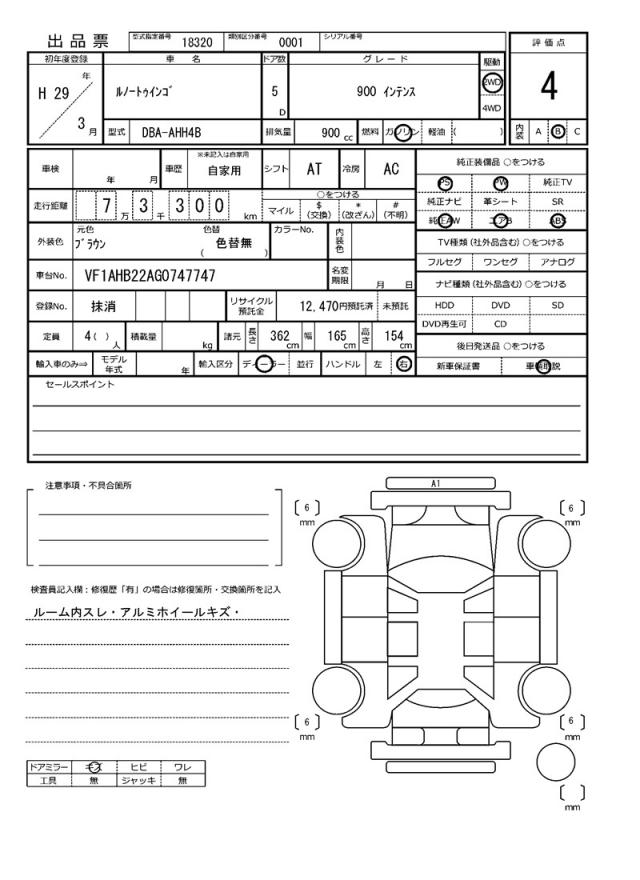 出品票 型式指定番号 18320 類別区分番号 0001 シリアル番号
評価点
4
内装 A B C
初年度登録 車名 ドア数 グレード 駆動
H 29 年 3 月 ルノートゥインゴ 5 D 900 インテンス 2WD 4WD
型式 DBA-AHH4B 排気量 900 cc 燃料 ガソリン 軽油 ( )
車検 年 月 車歴 ※未記入は自家用 自家用 シフト AT 冷房 AC
走行距離 7 万 3 千 3 0 0 km ○をつける
マイル $ (交換) * (改ざん) # (不明)
外装色 元色 ブラウン 色替 ( 色替無 ) カラーNo. 内装色
車台No. VF1AHB22AG0747747 名変期限 月 日
登録No. 抹消 リサイクル預託金 12,470円預託済 未預託
定員 4 ( ) 人 積載量 kg 諸元 長さ 362 cm 幅 165 cm 高さ 154 cm
輸入車のみ⇒ モデル年式 年 輸入区分 ディーラー 並行 ハンドル 左 右
純正装備品 ○をつける
PS PW 純正TV
純正ナビ 革シート SR
純正AW エアB ABS
TV種類 (社外品含む) ○をつける
フルセグ ワンセグ アナログ
ナビ種類 (社外品含む) ○をつける
HDD DVD SD
DVD再生可 CD
後日発送品 ○をつける
新車保証書 車輌取説
セールスポイント
注意事項・不具合箇所
検査員記入欄：修復歴「有」の場合は修復箇所・交換箇所を記入
ルーム内スレ・アルミホイールキズ・
ドアミラー キズ ヒビ ワレ
工具 無 ジャッキ 無
A1
6 mm
6 mm
6 mm
6 mm
mm